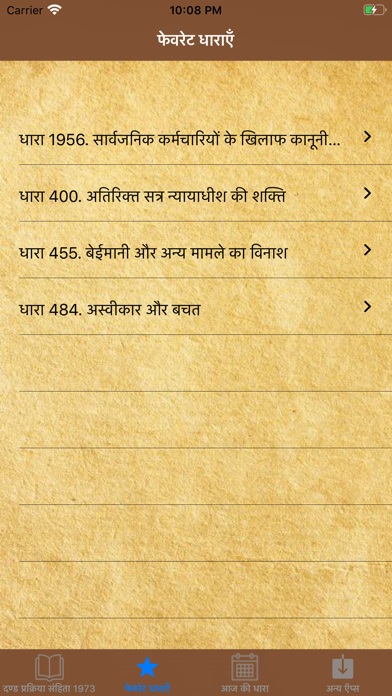 Carrier 10:08 PM
फेवरेट धाराएँ
धारा 1956. सार्वजनिक कर्मचारियों के खिलाफ कानूनी...
धारा 400. अतिरिक्त सत्र न्यायाधीश की शक्ति
धारा 455. बेईमानी और अन्य मामले का विनाश
धारा 484. अस्वीकार और बचत
दण्ड प्रक्रिया संहिता 1973 फेवरेट धाराएँ आज की धारा अन्य ऍप्स